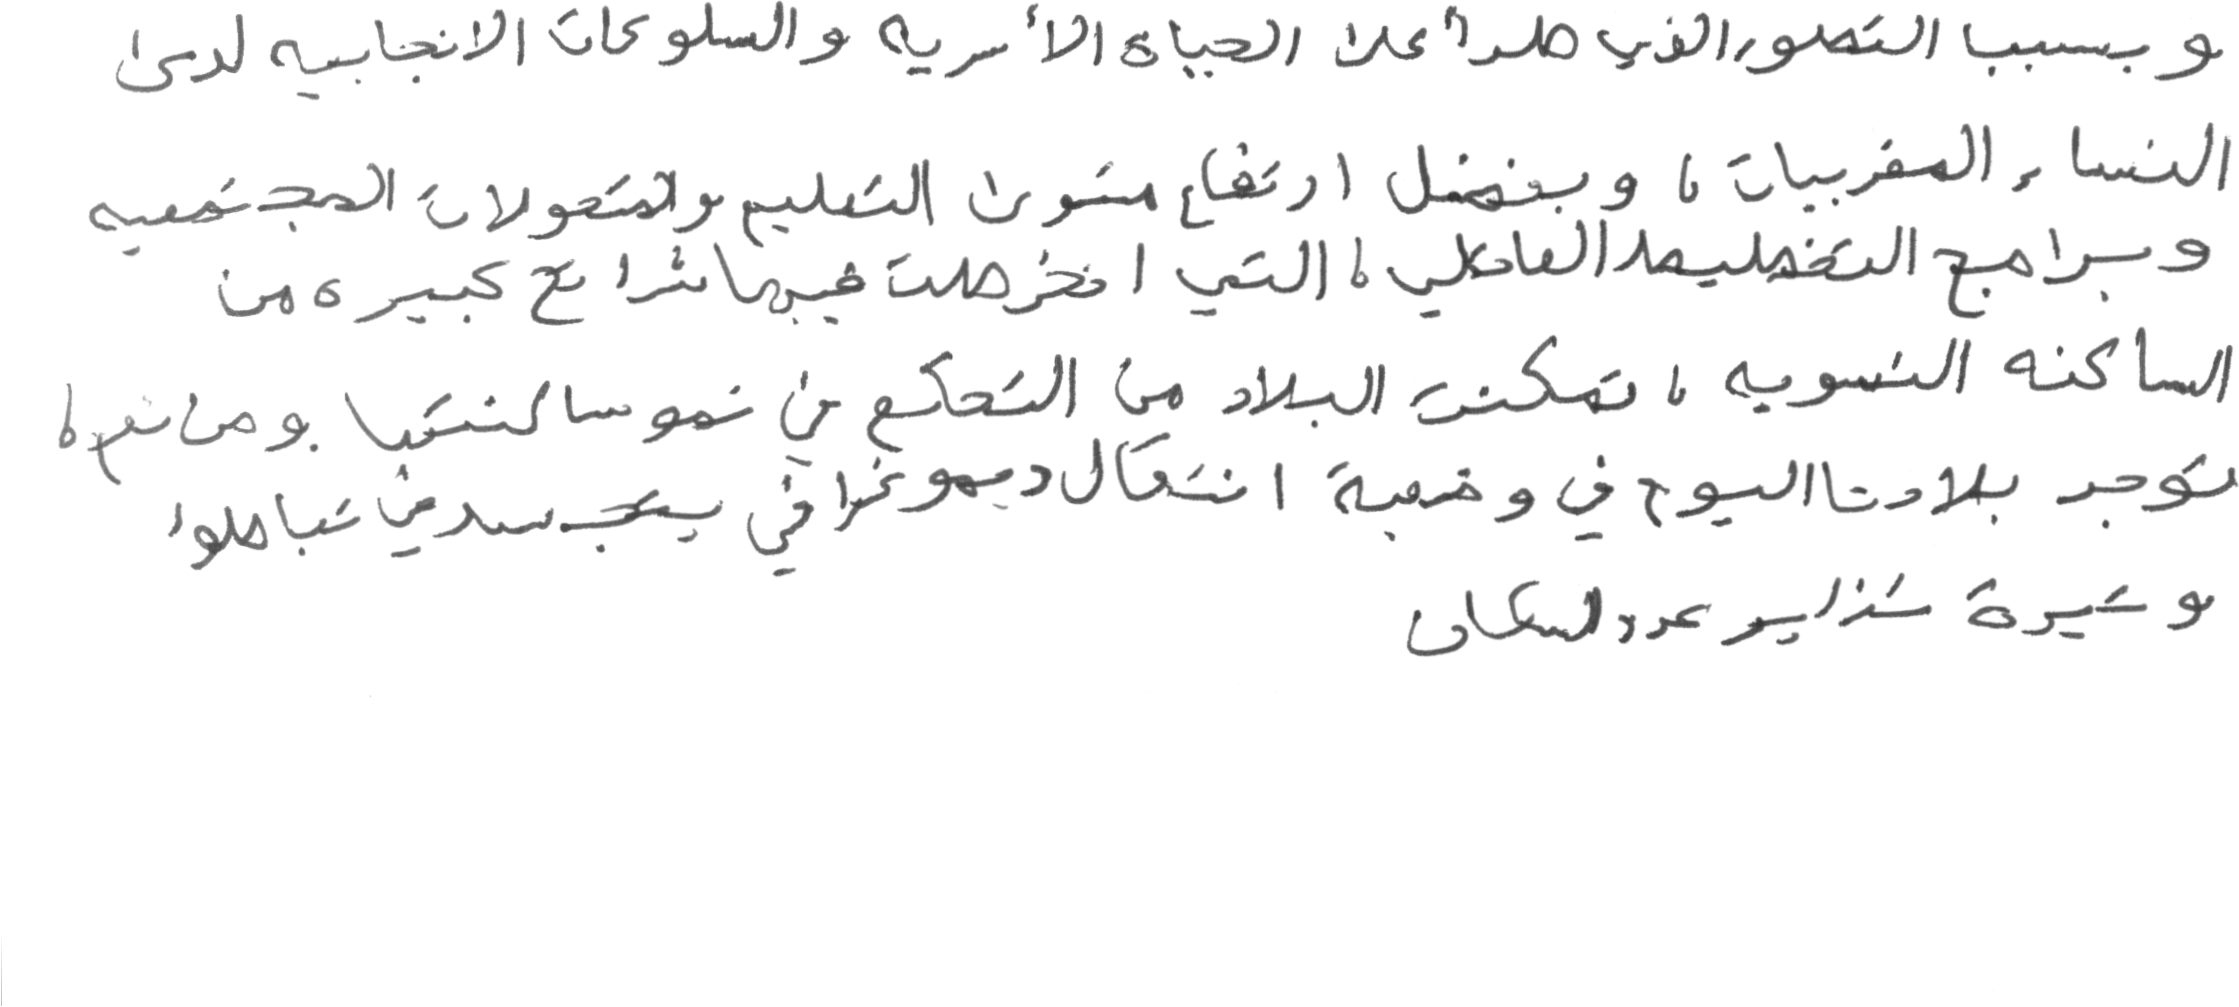 وبسبب التطور الذي طرأ على الحياة الأسريه والسلوكات الانجابيه لدى
النساء المغربيات، وبفضل ارتفاع مستوى التعليم والتحولات المجتمعيه
وبرامج التخطيط العائلي، التي انخرطت فيها شرائح كبيره من
الساكنه النسويه، تمكنت البلاد من التحكم في نمو ساكنتها ومن ثم،
توجد بلادنا اليوم في وضعية انتقال ديموغرافي يتجسد في تباطؤ
وتيرة تزايد عدد السكان